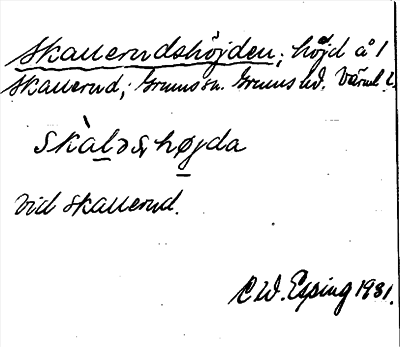 Skallerudshöjden; höjd å 1
Skallerud; Grums sn. Grums hd. Värml. l.
skàləs, højda
Vid Skallerud.
C W. Esping 1931.